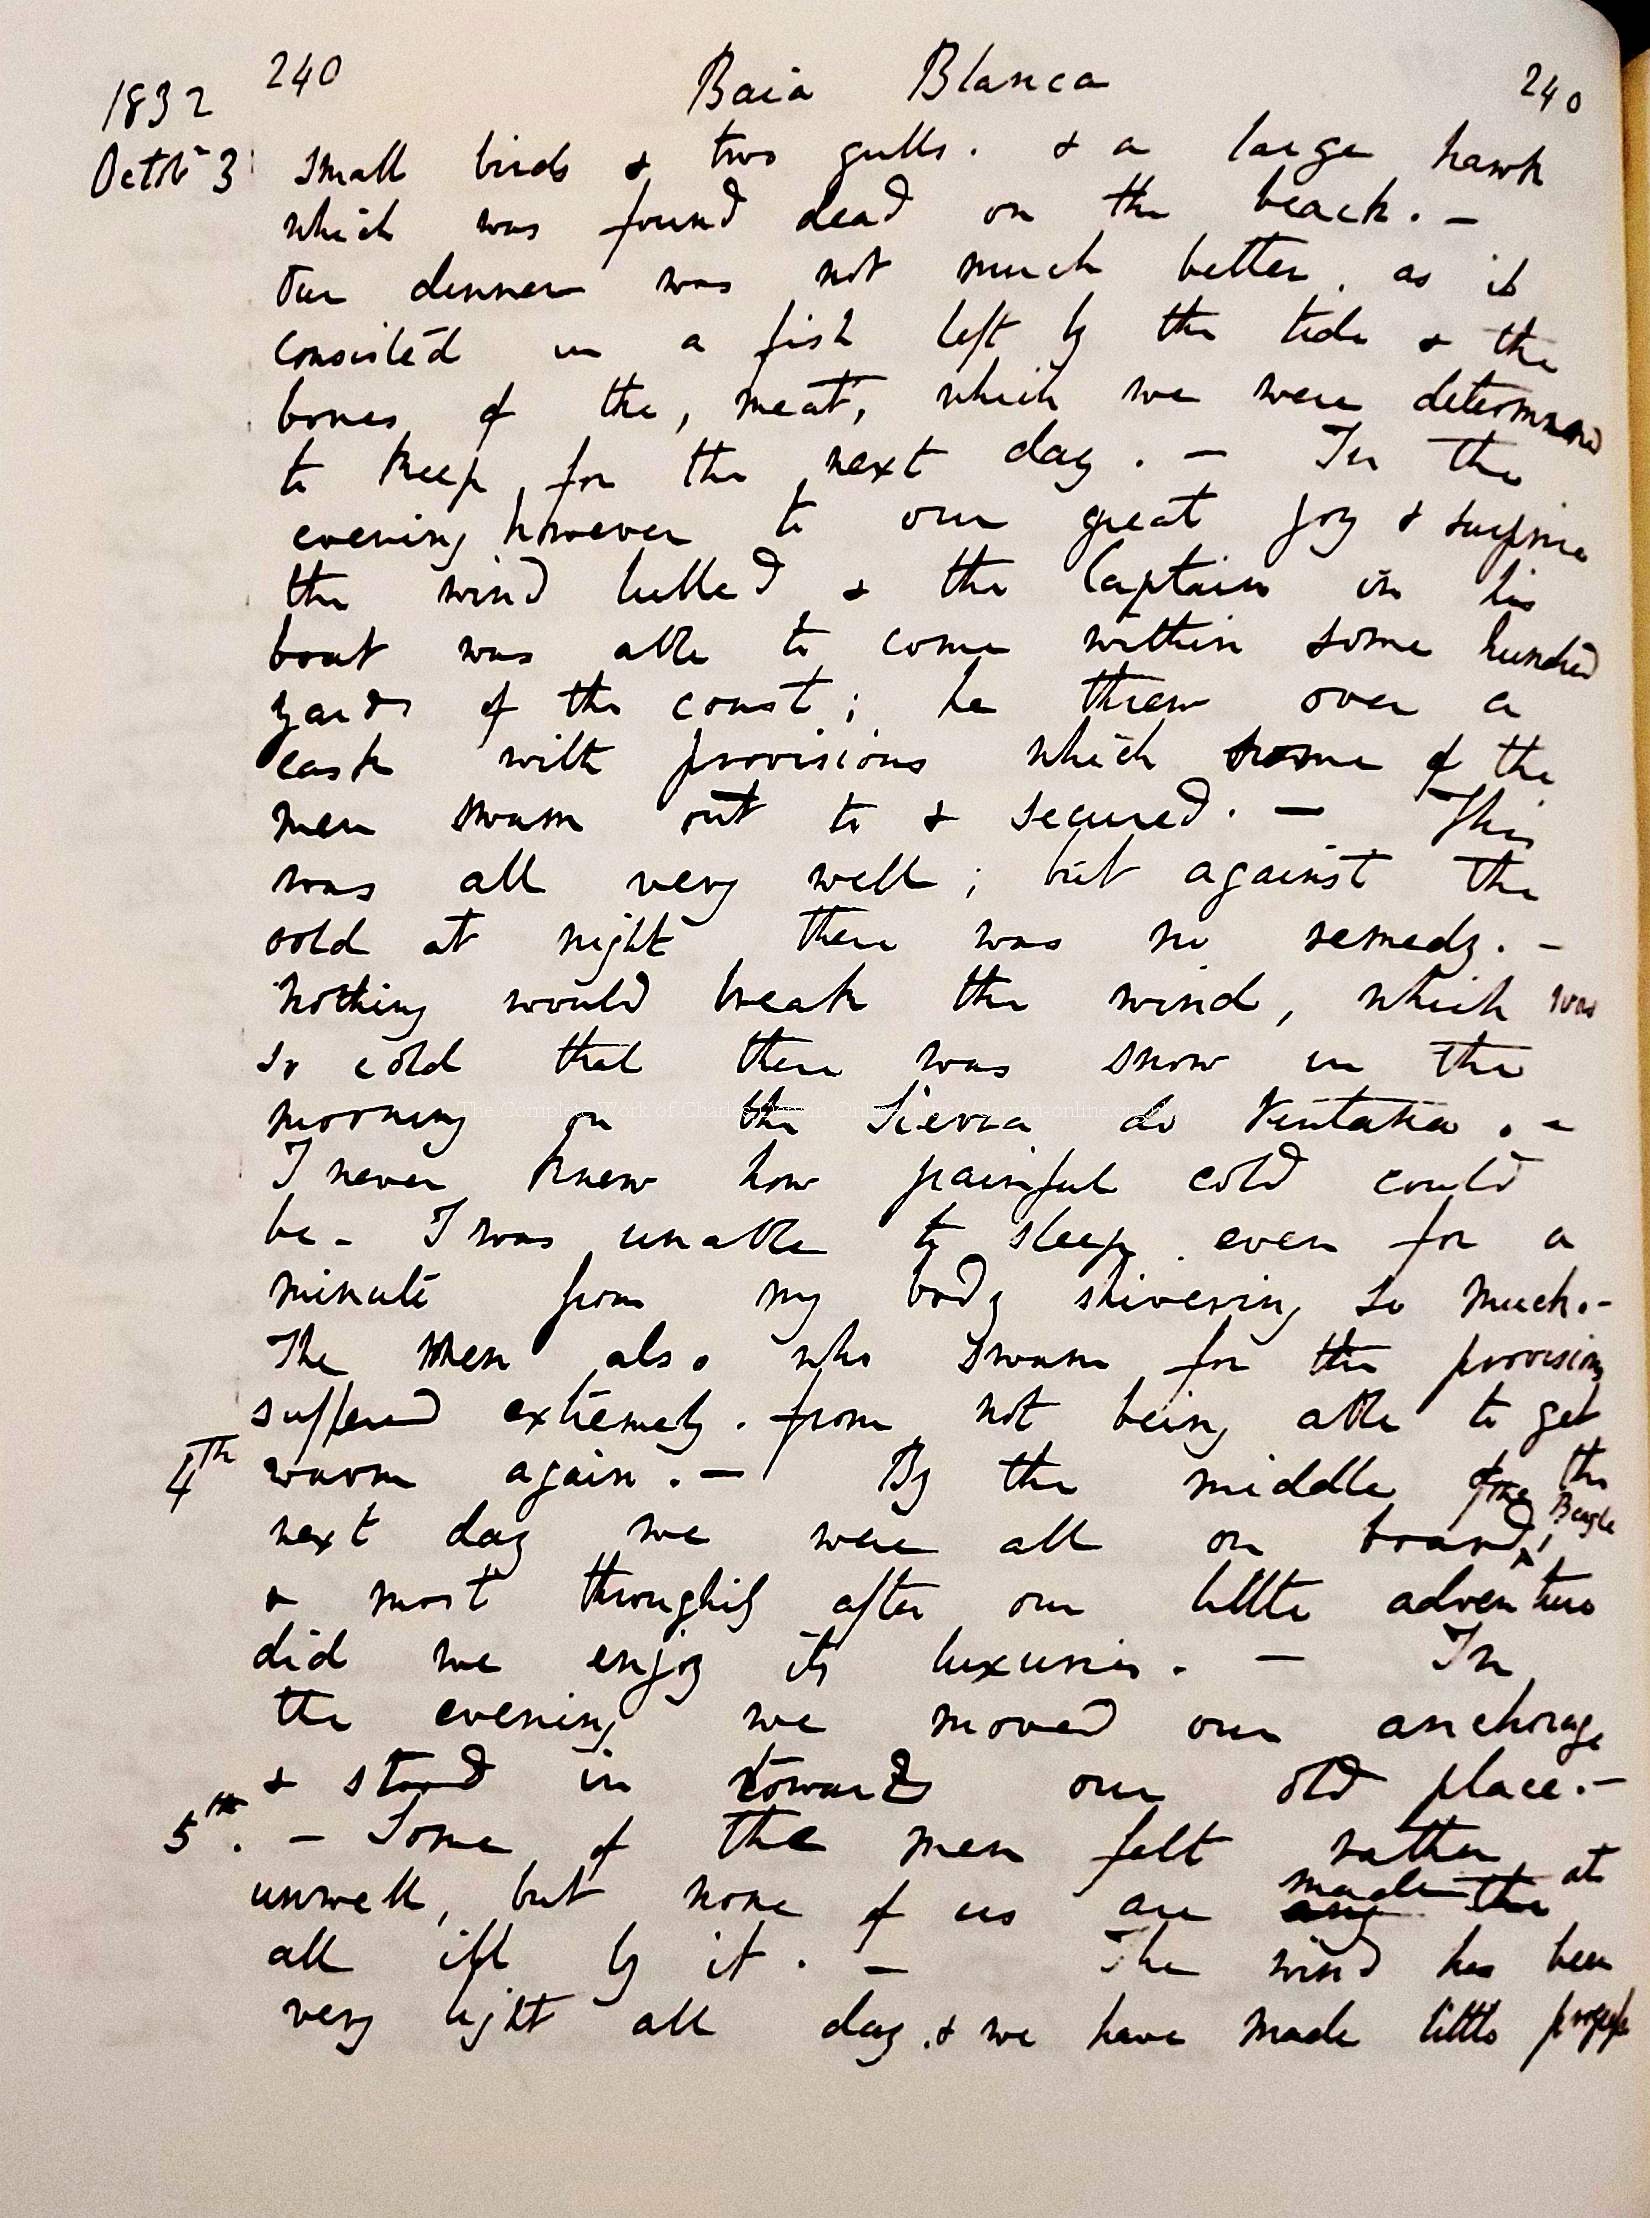 240 Baia Blanca 240
1832
Octbr 3 small birds & two gulls. & a large hawk
which was found dead on the beach. —
Our dinner was not much better, as it
consisted in a fish left by the tide & the
bones of the, meat, which we were determined
to keep for the next day. — In the
evening however to our great joy & surprise
the wind lulled & the Captain in his
boat was able to come within some hundred
yards of the coast; he threw over a
cask with provisions which some of the
men swam out to & secured. — This
was all very well; but against the
cold at night there was no remedy. —
Nothing would break the wind, which was
so cold that there was snow in the
morning on the Sierra de Ventana. —
I never knew how painful cold could
be. I was unable to sleep even for a
minute from my body shivering so much. —
The men also who swam for the provisions
suffered extremely. from not being able to get
4th warm again. — By the middle of the
the Beagle
next day we were all on board,
& most throughily after our little adventure
did we enjoy its luxuries. — In
the evening we moved our anchorage
& stood in towards our old place. —
5th. — Some of the men felt rather
made the at
unwell, but none of us are any
all ill by it. — The wind has been
very light all day & we have made little
The Complete Work of Charles Darwin Online